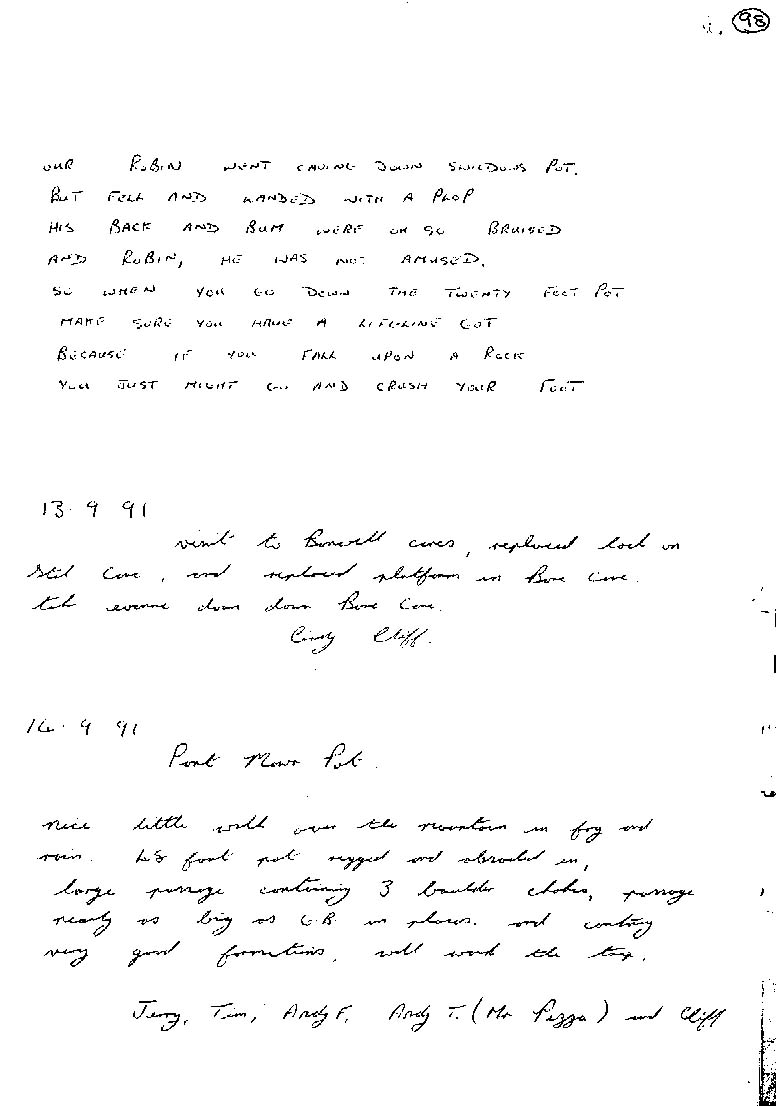 98
OUR ROBIN WENT CAVING DOWN SWILDONS POT.
BUT FELL AND LANDED WITH A PLOP
HIS BACK AND BUM WERE OH SO BRUISED
AND ROBIN, HE WAS NOT AMUSED.
SO WHEN YOU GO DOWN THE TWENTY FEET POT
MAKE SURE YOU HAVE A LIFE-LINE GOT
BECAUSE IF YOU FALL UPON A ROCK
YOU JUST MIGHT GO AND CRUSH YOUR FOOT
13.9 91
visit to caves, replaced lock on
Cave, and replaced platform in Bone Cave.
down Bone Cave.
Cindy Cliff.
14.9 91
Pant Mawr Pot.
nice little walk over the mountain in fog and
rain. 48 foot pot rigged and abseiled in,
large passage containing 3 boulder chokes, passage
nearly as big as G.B in places. and
very good formations, well worth the trip.
Jerry, Tim, Andy F, Andy T. (Mr Pizza) and Cliff